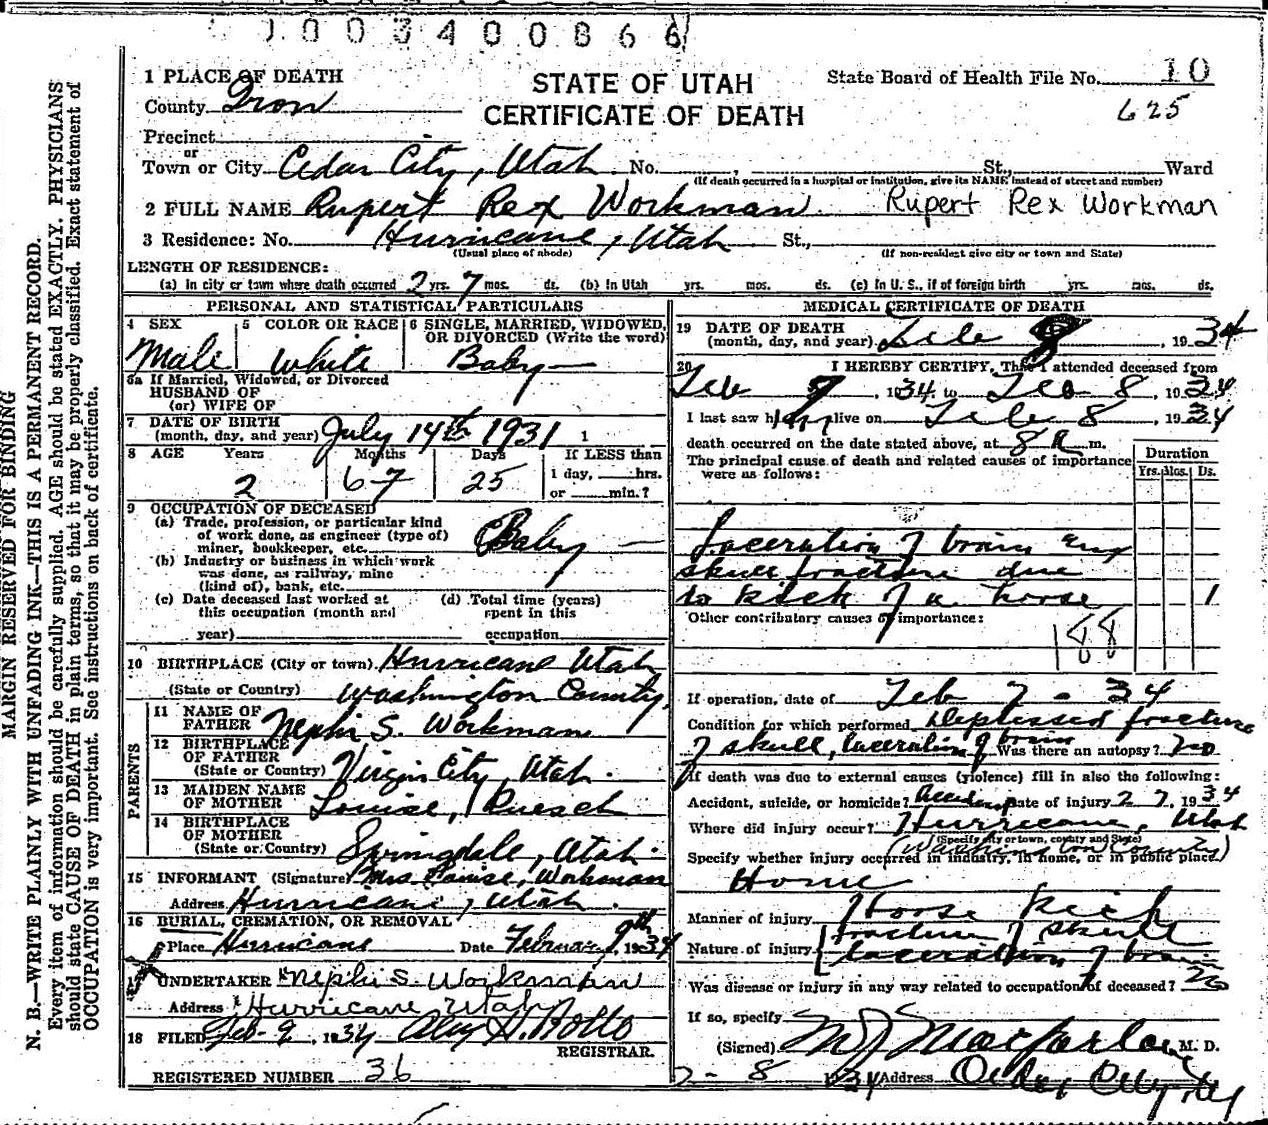 1003400866
1 PLACE OF DEATH
County Iron
STATE OF UTAH
CERTIFICATE OF DEATH
State Board of Health File No. 10
625
Precinct
or
Town or City Cedar City, Utah No. , St., Ward
(If death occurred in a hospital or institution, give its NAME instead of street and number)
2 FULL NAME Rupert Rex Workman Rupert Rex Workman
3 Residence: No. Hurricane, Utah St.,
(Usual place of abode) (If non-resident give city or town and State)
LENGTH OF RESIDENCE:
(a) In city or town where death occurred 2 yrs. 7 mos. ds. (b) In Utah yrs. mos. ds. (c) In U. S., if of foreign birth yrs. mos. ds.
PERSONAL AND STATISTICAL PARTICULARS
4 SEX 5 COLOR OR RACE 6 SINGLE, MARRIED, WIDOWED,
OR DIVORCED (Write the word)
Male White Baby
6a If Married, Widowed, or Divorced
HUSBAND OF
(or) WIFE OF
7 DATE OF BIRTH
(month, day, and year) July 14th 1931
8 AGE Years Months Days If LESS than
1 day, hrs.
or min.?
2 6 7 25
9 OCCUPATION OF DECEASED
(a) Trade, profession, or particular kind
of work done, as engineer (type of)
miner, bookkeeper, etc. Baby
(b) Industry or business in which work
was done, as railway, mine
(kind of), bank, etc.
(c) Date deceased last worked at (d) Total time (years)
this occupation (month and spent in this
year) occupation
10 BIRTHPLACE (City or town) Hurricane Utah
(State or Country) Washington County,
PARENTS
11 NAME OF
FATHER Nephi S. Workman
12 BIRTHPLACE
OF FATHER
(State or Country) Virgin City, Utah.
13 MAIDEN NAME
OF MOTHER Louise, Ruesch
14 BIRTHPLACE
OF MOTHER
(State or Country) Springdale, Utah.
15 INFORMANT (Signature) Mrs. Louise, Workman
Address Hurricane, Utah.
16 BURIAL, CREMATION, OR REMOVAL
Place Hurricane Date February 9th, 1934
UNDERTAKER Nephi S. Workman
Address Hurricane Utah
18 FILED Feb-9, 1934
REGISTRAR.
REGISTERED NUMBER 36
MEDICAL CERTIFICATE OF DEATH
19 DATE OF DEATH
(month, day, and year) Feb 8, 1934
20 I HEREBY CERTIFY, That I attended deceased from
Feb , 1934, to Feb 8, 1934
I last saw h alive on Feb 8, 1934
death occurred on the date stated above, at 8 a m.
The principal cause of death and related causes of importance
were as follows:
Duration
Yrs. Mos. Ds.
Laceration of brain and
skull fracture due
to kick of a horse 1
Other contributory causes of importance:
188
If operation, date of Feb 7 - 34
Condition for which performed Depressed fracture
of skull, laceration of brain Was there an autopsy? no
If death was due to external causes (violence) fill in also the following:
Accident, suicide, or homicide? Accident Date of injury 2 7, 1934
Where did injury occur? Hurricane, Utah
(Specify city or town, county and State)
(Washington County)
Specify whether injury occurred in industry, in home, or in public place.
Home
Manner of injury Horse kick
Nature of injury fracture of skull
laceration of brain
Was disease or injury in any way related to occupation of deceased? no
If so, specify
(Signed) M J Macfarlane M. D.
2-8 1934 Address Cedar City, Utah
MARGIN RESERVED FOR BINDING
N. B.—WRITE PLAINLY WITH UNFADING INK—THIS IS A PERMANENT RECORD.
Every item of information should be carefully supplied. AGE should be stated EXACTLY. PHYSICIANS
should state CAUSE OF DEATH in plain terms, so that it may be properly classified. Exact statement of
OCCUPATION is very important. See instructions on back of certificate.